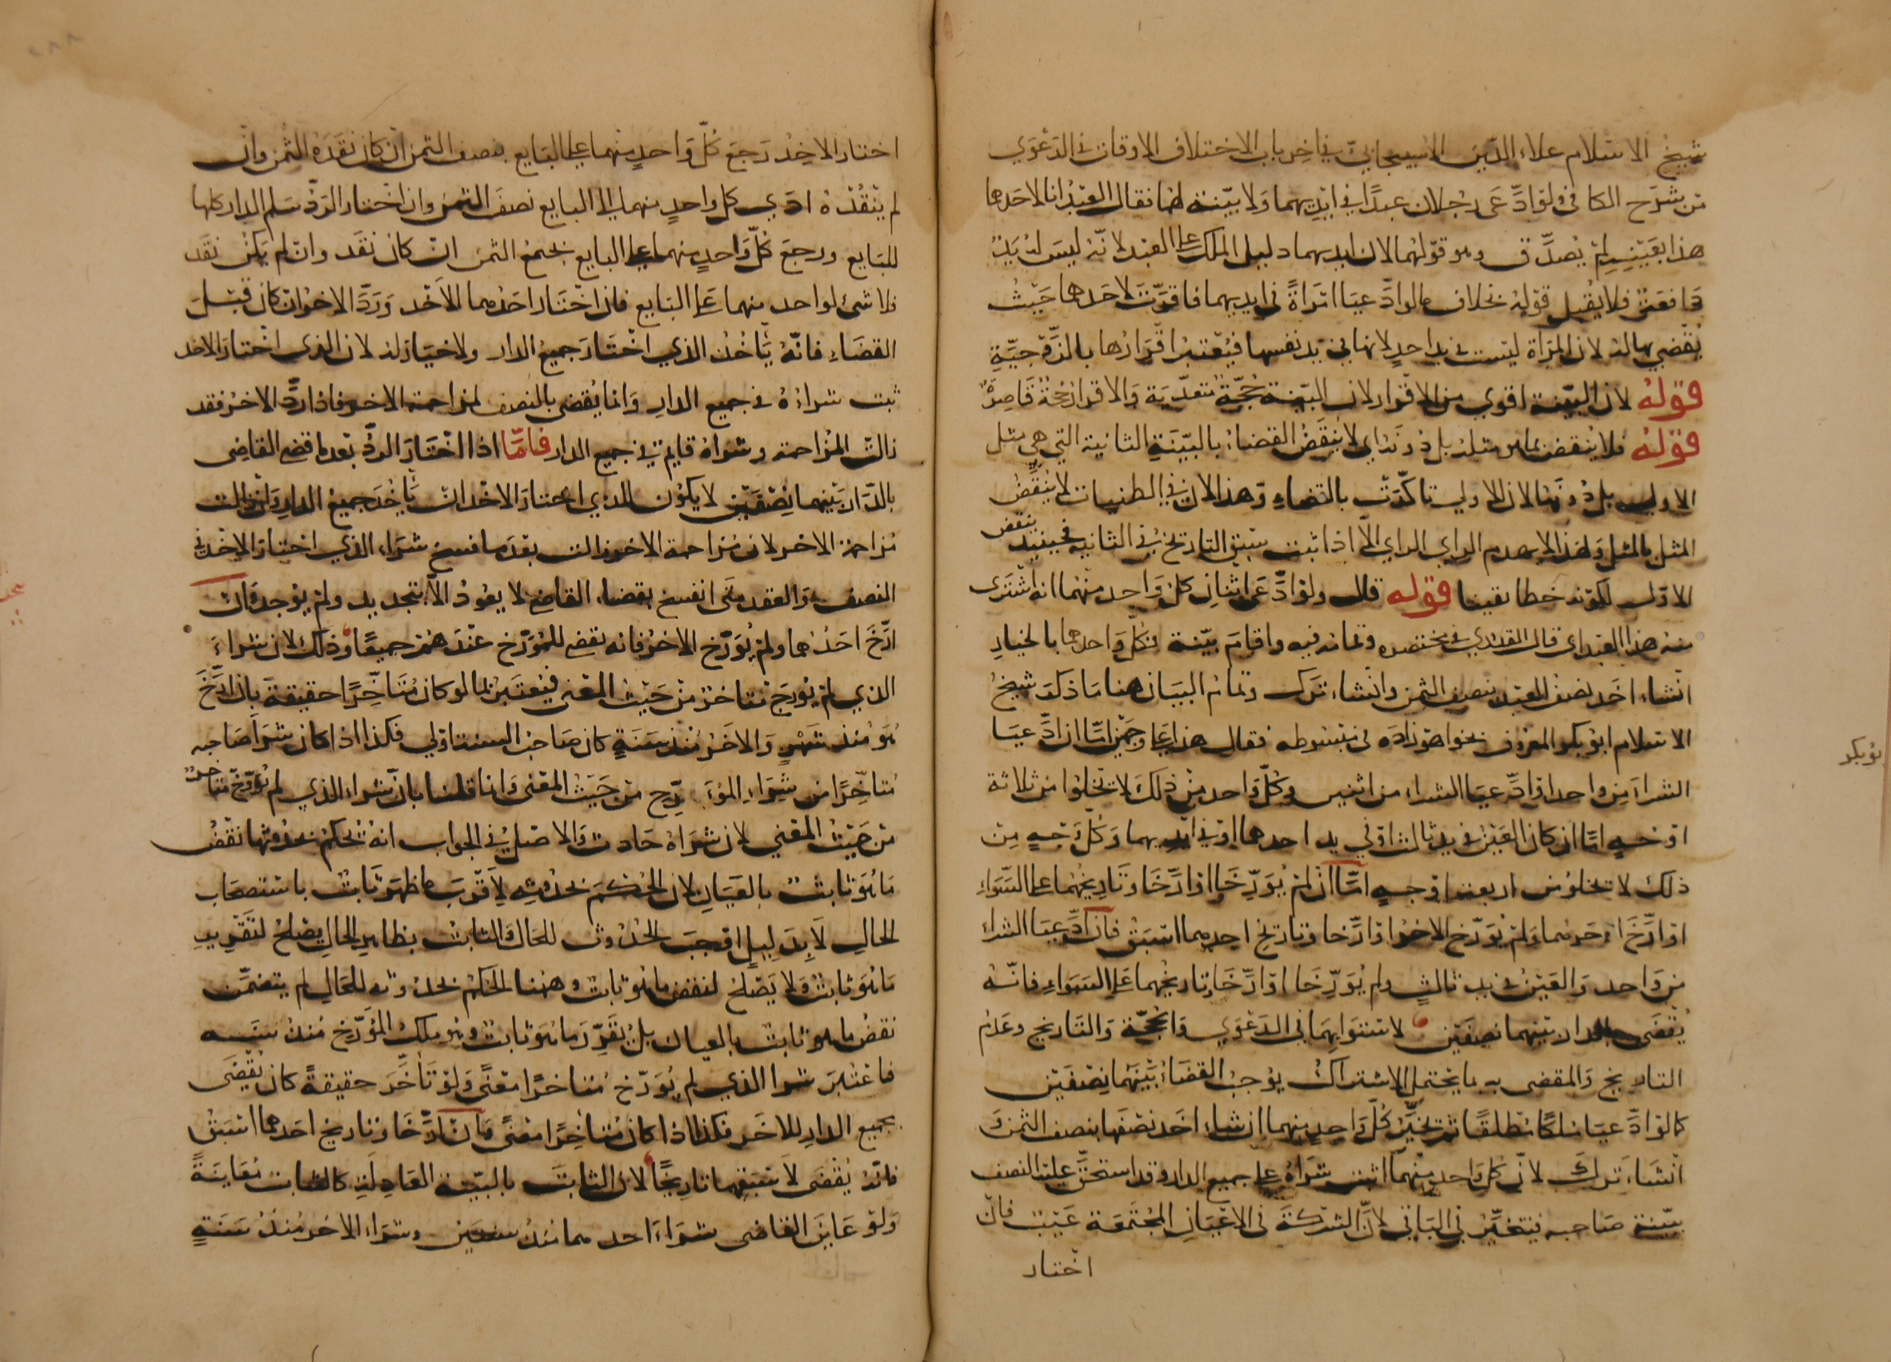 شيخ الاسلام علاء الدين الاسبيجابي في اخر باب الاختلاف الاوقات في الدعوى
من شرح الكافي ولو ادعى رجلان عبدا في ايديهما ولا بينة لهما فقال العبد انا لاحدهما
هذا بعينه لم يصدق وهو قولهما لان ايديهما دليل الملك على العبد لانه ليس له يد
دافعة فلا يقبل قوله بخلاف ما لو ادعيا امراة في ايديهما فاقرت لاحدهما حيث
يقضي بها له لان المراة ليست في يد احد لانها في يد نفسها فيعتبر اقرارها بالزوجية
قوله لان البينة اقوى من الاقرار لان البينة حجة متعدية والاقرار حجة قاصرة
قوله فلا ينقض بما هو مثله بل دونه اي لا ينقض القضاء بالبينة الثانية التي هي مثل
الاولى بل دونها لان الاولى تاكدت بالقضاء وهذا لان في الظنيات لا ينقض
المثل بالمثل ولهذا لا يهدم الراي الراي الا اذا ثبت سبق التاريخ في الثانية فحينئذ ينقض
الاول لكونه خطا يقينا قوله قال ولو ادعى اثنان كل واحد منهما انه اشترى
منه هذا العبد اي قال القدوري في مختصره وتمامه فيه واقام بينة فكل واحد منهما بالخيار
ان شاء اخذ نصف العبد بنصف الثمن وان شاء ترك وتمام البيان هنا ما ذكر شيخ
الاسلام ابو بكر المعروف بخواهر زاده في مبسوطه فقال هذا على وجهين اما ان ادعيا
الشراء من واحد او ادعيا الشراء من اثنين وكل واحد من ذلك لا يخلوا من ثلاثة
اوجه اما ان كان العين في يد ثالث او في يد احدهما او في ايديهما وكل وجه من
ذلك لا يخلو من اربعة اوجه اما ان لم يؤرخا او ارخا وتاريخهما على السواء
او ارخ احدهما ولم يؤرخ الاخر او ارخا وتاريخ احدهما اسبق فان ادعيا الشراء
من واحد والعين في يد ثالث ولم يؤرخا او ارخا وتاريخهما على السواء فانه
يقضى بالدار بينهما نصفين لاستوايهما في الدعوى والحجة والتاريخ وعدم
التاريخ والمقضى به ما يحتمل الاشتراك يوجب القضاء بينهما نصفين
كما لو ادعيا ملكا مطلقا ثم يخير كل واحد منهما ان شاء اخذ نصفها بنصف الثمن و
ان شاء ترك لان كل واحد منهما اثبت شراه على جميع الدار وقد استحق عليه النصف
ببينة صاحبه فيتخير في الباقي لان الشركة في الاعيان المجتمعة عيب فان
اختار
بو بكر
اختار الاخذ رجع كل واحد منهما على البايع بنصف الثمن ان كان نقده الثمن وان
لم ينقده ادى كل واحد منهما الى البايع نصف الثمن وان اختار الرد سلم الدار كلها
للبايع ورجع كل واحد منهما على البايع بجميع الثمن ان كان نقد وان لم يكن نقد
فلا شئ لواحد منهما على البايع فان اختار احدهما الاخذ ورد الاخر ان كان قبل
القضاء فانه ياخذ الذي اختار جميع الدار ولا خيار له لان الذي اختار الاخذ
ثبت شراؤه في جميع الدار وانما يقضى بالنصف لمزاحمة الاخر فاذا رد الاخر فقد
زالت المزاحمة وشراه قايم في جميع الدار فاما اذا اختار الرد بعد ما قضى القاضي
بالدار بينهما نصفين لا يكون للذي اختار الاخذ ان ياخذ جميع الدار وان زالت
مزاحمة الاخر لان مزاحمة الاخر زالت بعد ما فسخ شراء الذي اختار الاخذ في
النصف والعقد متى انفسخ بقضاء القاضي لا يعود الا بتجديد ولم يوجد وان
ارخ احدهما ولم يؤرخ الاخر فانه يقضى للمؤرخ عندهم جميعا وذلك لان شراء
الذي لم يؤرخ متاخر من حيث المعنى فيعتبر بما لو كان متاخرا حقيقة بان ارخ
هو منذ شهر والاخر منذ سنة كان صاحب السنة اولى فكذا اذا كان شرا صاحبه
متاخرا من شراء المؤرخ من حيث المعنى وانما قلنا بان شراء الذي لم يؤرخ متاخر
من حيث المعنى لان شراه حادث والاصل في الجواب انه يحكم بحدوثها نقض
ما هو ثابت بالعيان لان الحكم بحدوثه لاقرب ما ظهر ثابت باستصحاب
الحال لا بدليل اوجب الحدوث للحال والثابت بظاهر الحال يصلح لتقرير
ما هو ثابت ولا يصلح لنقض ما هو ثابت وهنا الحكم بحدوثه للحال لم يتضمن
نقض ما هو ثابت بالعيان بل يقرر ما هو ثابت وهو ملك المؤرخ منذ سنة
فاعتبر شرا الذي لم يؤرخ متاخرا معنى ولو تاخر حقيقة كان يقضى
بجميع الدار للاخر فكذا اذا كان متاخرا معنى وان ارخا وتاريخ احدهما اسبق
فانه يقضى لاسبقهما تاريخا لان الثابت بالبينة العادلة كالثابت معاينة
ولو عاين القاضي شراء احدهما منذ سنتين وشراء الاخر منذ سنة